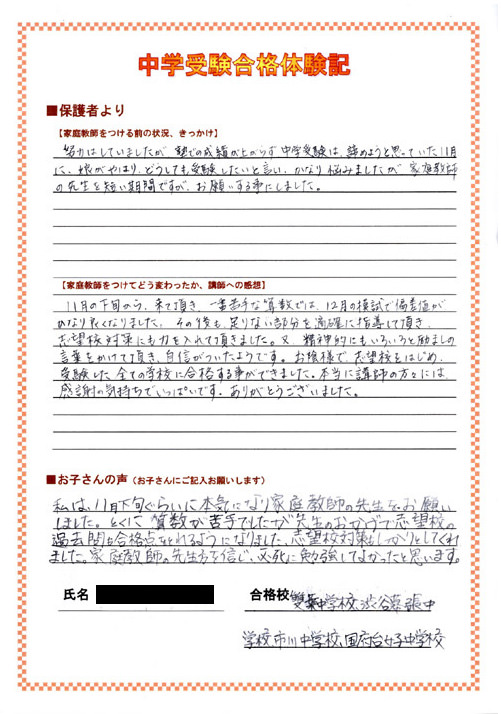 中学受験合格体験記
■保護者より
【家庭教師をつける前の状況、きっかけ】
努力はしていましたが 塾での成績が上がらず 中学受験は、諦めようと思っていた11月
に、娘がやはり、どうしても受験したいと言い、かなり悩みましたが 家庭教師
の先生を短い期間ですが、お願いする事にしました。
【家庭教師をつけてどう変わったか、講師への感想】
11月の下旬から、来て頂き 一番苦手な算数では、12月の模試で偏差値が
かなり良くなりました。その後も、足りない部分を適確に指導して頂き、
志望校対策にも力を入れて頂きました。又、精神的にもいろいろと励ましの
言葉をかけて頂き、自信がついたようです。お陰様で、志望校をはじめ、
受験した全ての学校に合格する事ができました。本当に講師の方々には
感謝の気持ちでいっぱいです。ありがとうございました。
■お子さんの声(お子さんにご記入お願いします)
私は、11月下旬ぐらいに本気になり家庭教師の先生をお願い
しました。とくに 算数が苦手でしたが先生のおかげで志望校の
過去問も合格点をとれるようになりました。志望校対策もしっかりとしてくれ
ました。家庭教師の先生方を信じ、必死に勉強してよかったと思います。
氏名 合格校 雙葉中学校、渋谷幕張中
学校、市川中学校、国府台女子中学校